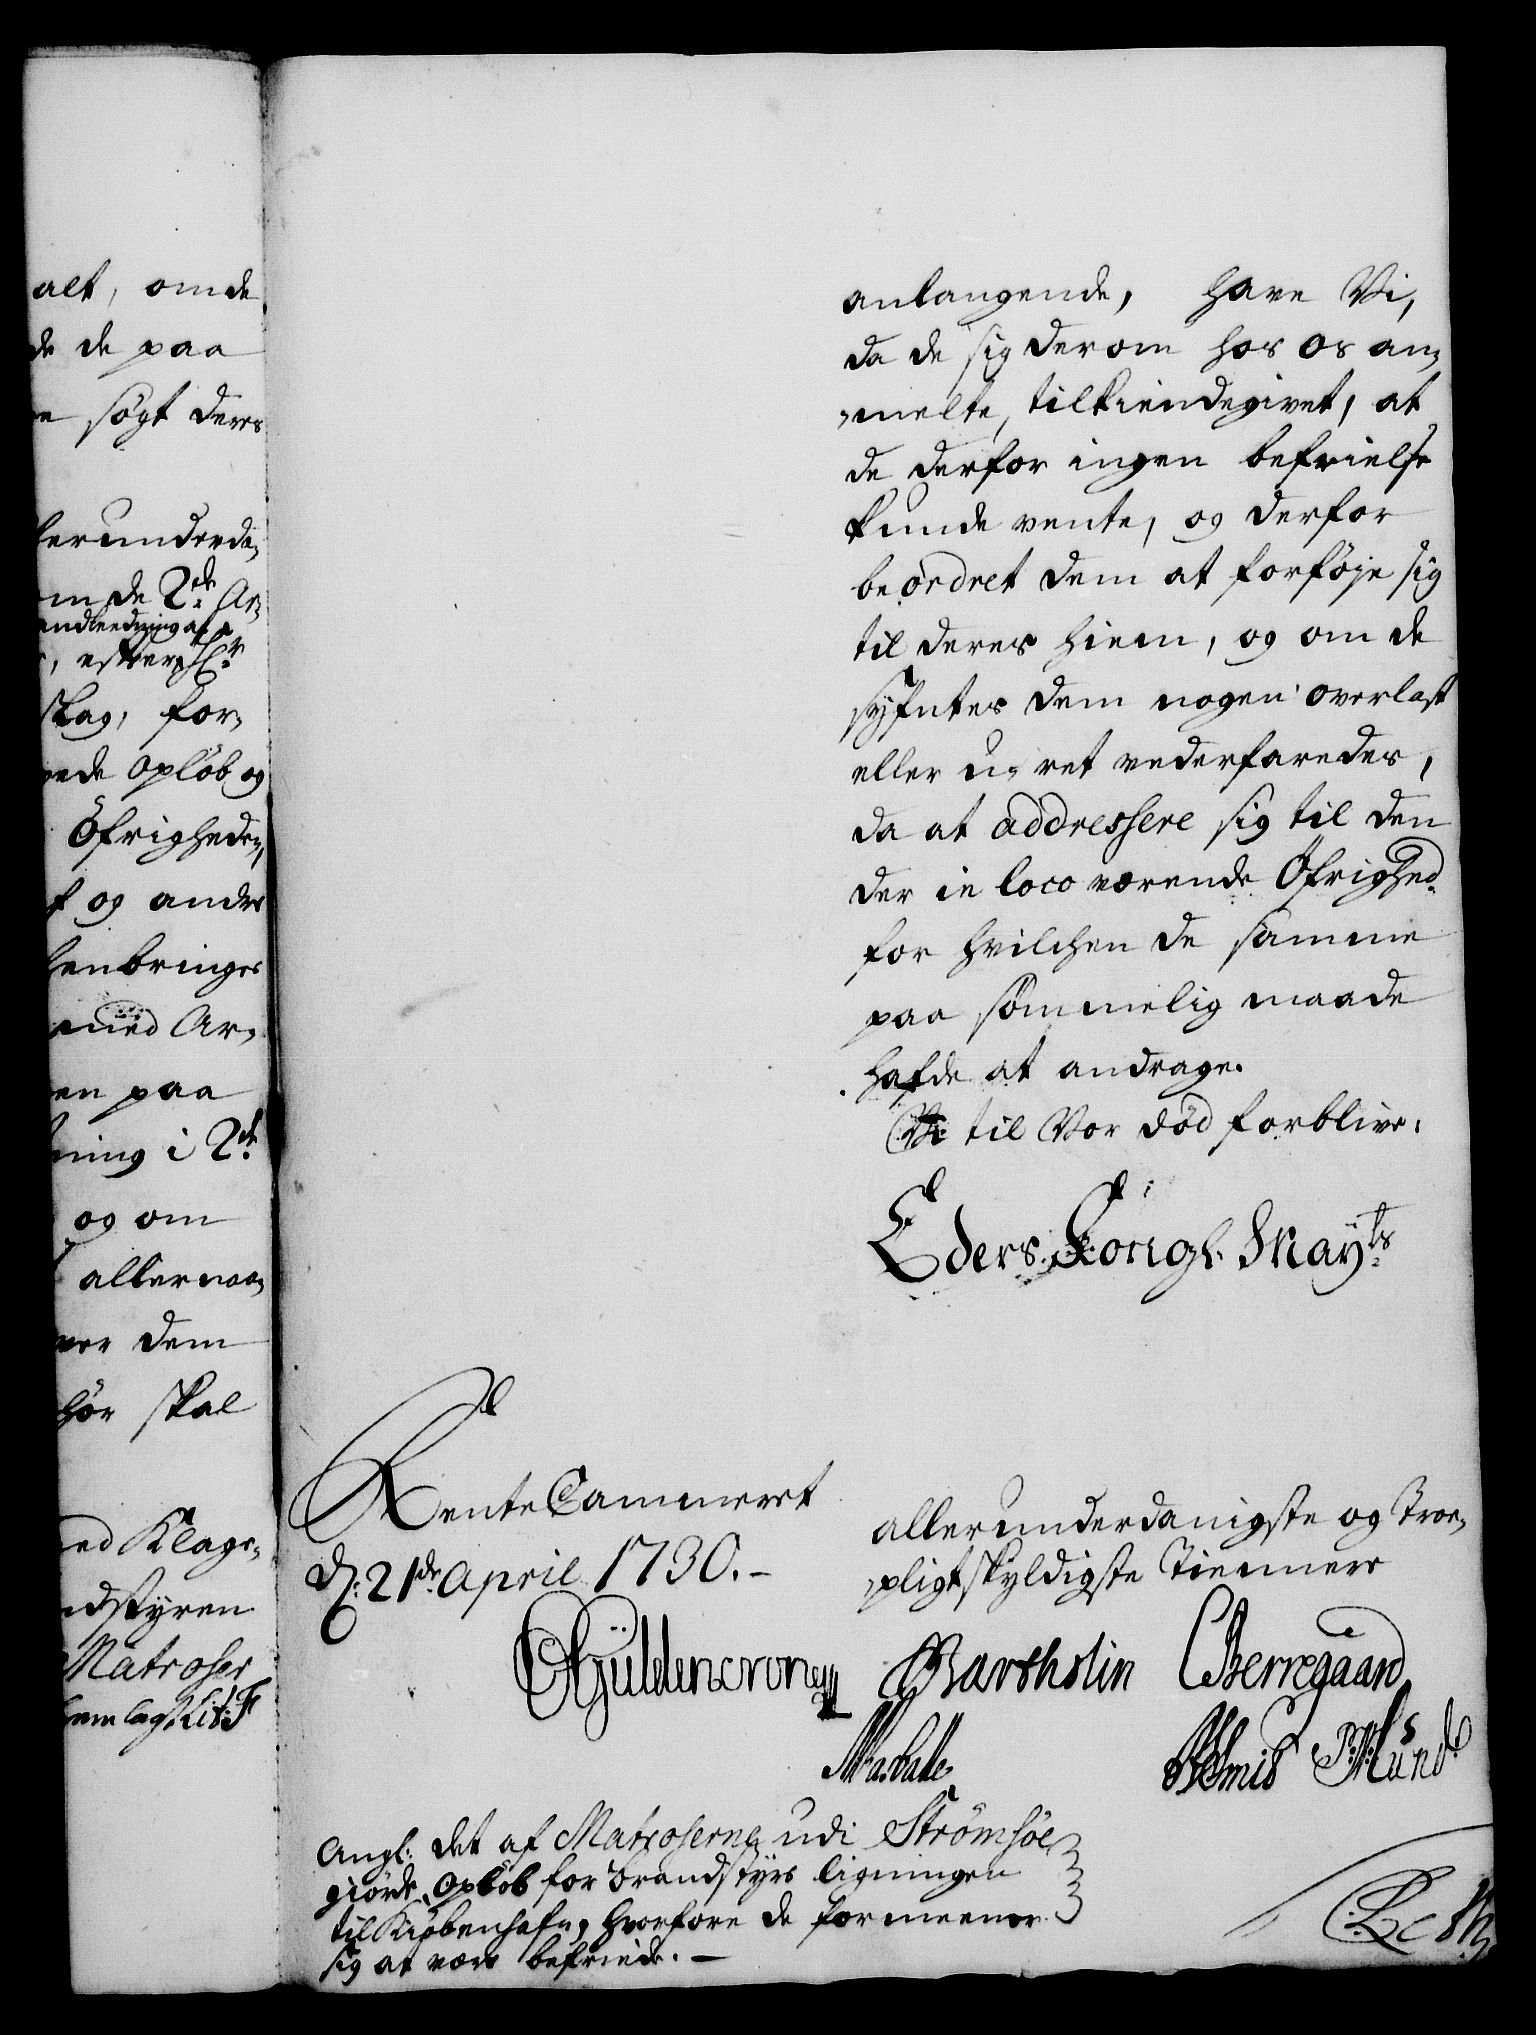 alt, om de
de de paa
søgt deres
lerunderda¬
om de 2de Ar¬
andledning af
skag, for¬
opløb og
Øfrigheden,
f og andre
enbringes
med Ar¬
en paa
ning i 2de
og om
allernaa¬
ver dem
hør skal
ed Klage¬
ndstyren
Matroser
lagt Lit: F
anlangende, have Vi,
da de sig derom hos os an¬
melte, tilkiendegivet, at
de derfor ingen befrielse
kunde vente, og derfor
beordret dem at forføje sig
til deres hiem, og om de
syfntes dem nogen overlast
eller u-ret vederfaredes,
da at addressere sig til den
der in loco værende Øfrighed,
for hvilchen de samme
paa sømmelig maade
hafde at andrage.
Vi til Vor død forblive:
Eders Kongl. Mayts
RenteCammeret
d: 21de April 1730.-
allerunderdanigste og Troe¬
pligtskyldigste Tiennere
Güldencrone
Bartholin CBerregaard
Smid Münd
Angl: det af Matroserne udi Strømsøe
giorde Opløb for Brandstyrs ligningen
til Kiøbenhafn, hvorfore de formeener
sig at være befriede. -